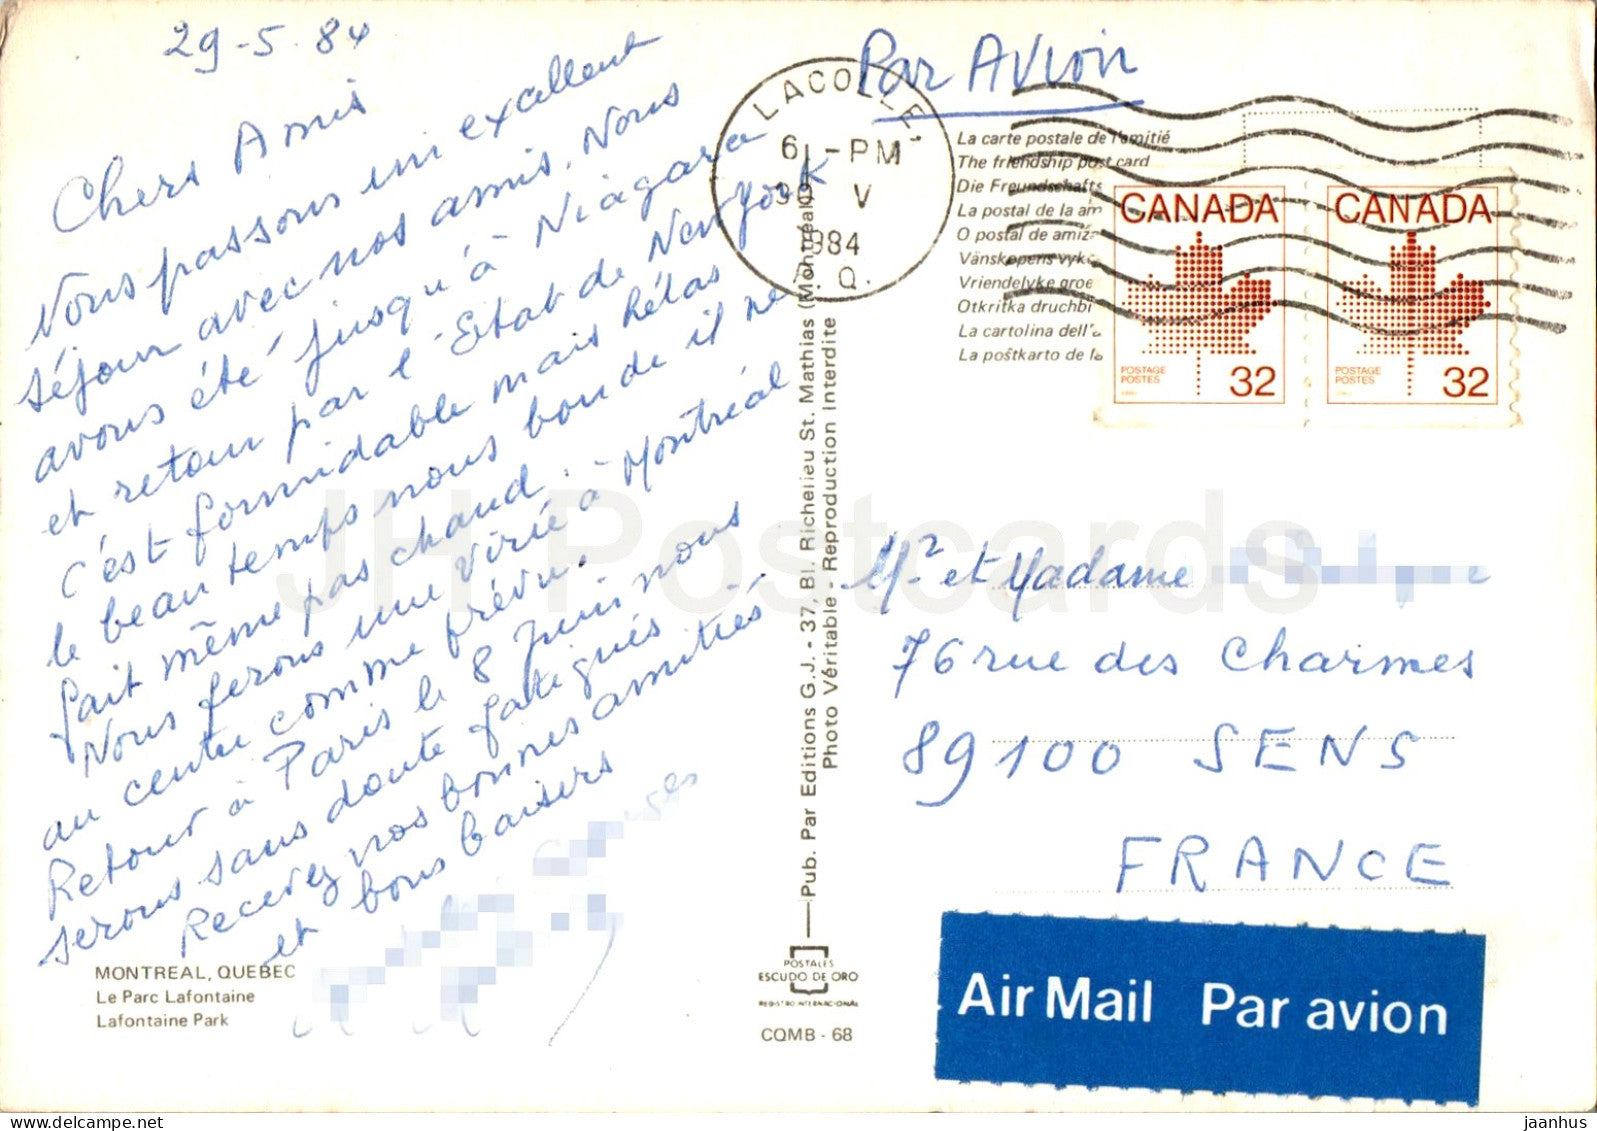 29-5-84
Chers Amis
Nous passons un excellent
séjour avec nos amis. Nous
avons été jusqu'à Niagara
et retour par l'Etat de New York
c'est formidable mais hélas
le beau temps nous boude il ne
fait même pas chaud.
Nous ferons une virée à Montréal
au centre comme prévu.
Retour à Paris le 8 Juin nous
serons sans doute fatigués -
Recevez nos bonnes amitiés
et bons baisers
MONTREAL, QUEBEC
Le Parc Lafontaine
Lafontaine Park
Pub. Par Editions G.J. - 37, Bl. Richelieu St. Mathias (Montréal)
Photo Véritable - Reproduction Interdite
POSTALES
ESCUDO DE ORO
REGISTRO INTERNACIONAL
CQMB - 68
LACOLLE,
6 - PM
V
1984
P.Q.
Par Avion
La carte postale de l'amitié
The friendship post card
Die Freundschafts
La postal de la am
O postal de amiz
Vänskapens vyk
Vriendelyke groe
Otkritka druchbi
La cartolina dell'a
La poŝtkarto de la
CANADA
POSTAGE
POSTES
32
CANADA
POSTAGE
POSTES
32
Mr et Madame
76 rue des Charmes
89100 SENS
FRANCE
Air Mail Par avion
JH Postcards
jaanhus